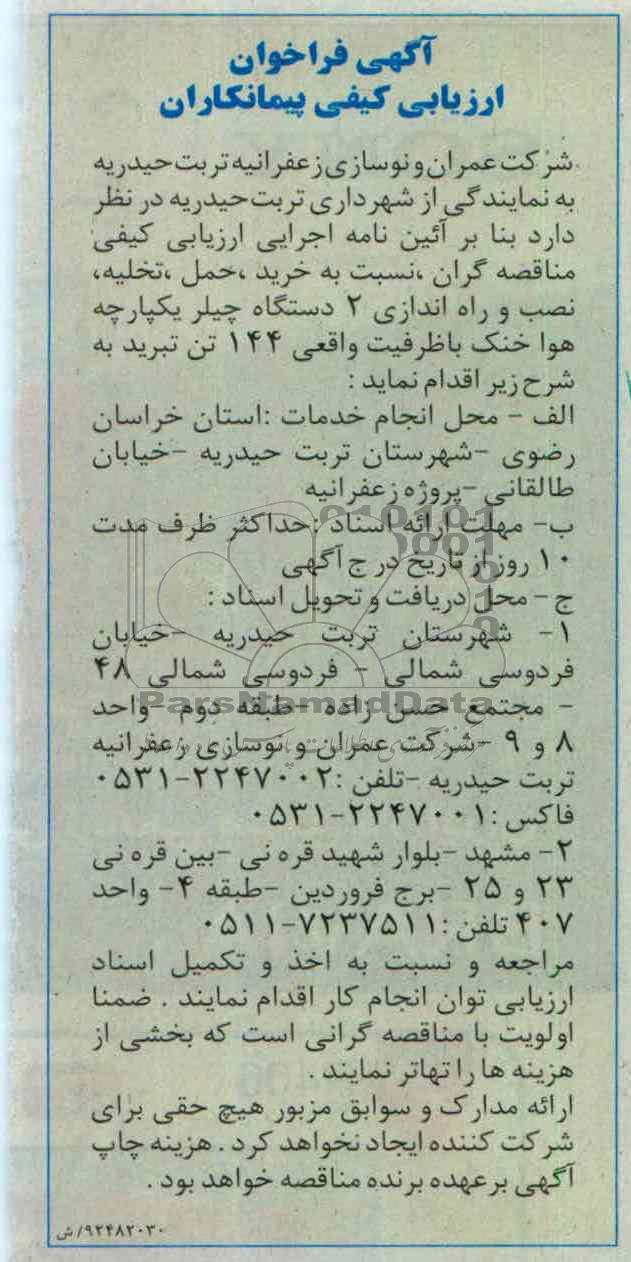 آگهی فراخوان
ارزیابی کیفی پیمانکاران
شرکت عمران و نوسازی زعفرانیه تربت حیدریه
به نمایندگی از شهرداری تربت حیدریه در نظر
دارد بنا بر آئین نامه اجرایی ارزیابی کیفی
مناقصه گران ،نسبت به خرید ،حمل ،تخلیه،
نصب و راه اندازی ۲ دستگاه چیلر یکپارچه
هوا خنک باظرفیت واقعی ۱۴۴ تن تبرید به
شرح زیر اقدام نماید :
الف - محل انجام خدمات :استان خراسان
رضوی -شهرستان تربت حیدریه -خیابان
طالقانی -پروژه زعفرانیه
ب- مهلت ارائه اسناد :حداکثر ظرف مدت
۱۰ روز از تاریخ درج آگهی
ج- محل دریافت و تحویل اسناد :
۱- شهرستان تربت حیدریه -خیابان
فردوسی شمالی - فردوسی شمالی ۴۸
- مجتمع حسن زاده -طبقه دوم- واحد
۸ و ۹ -شرکت عمران و نوسازی زعفرانیه
تربت حیدریه -تلفن :۲۲۴۷۰۰۲-۰۵۳۱
فاکس :۲۲۴۷۰۰۱-۰۵۳۱
۲- مشهد -بلوار شهید قره نی -بین قره نی
۲۳ و ۲۵ -برج فروردین -طبقه ۴- واحد
۴۰۷ تلفن :۷۲۳۷۵۱۱-۰۵۱۱
مراجعه و نسبت به اخذ و تکمیل اسناد
ارزیابی توان انجام کار اقدام نمایند . ضمنا
اولویت با مناقصه گرانی است که بخشی از
هزینه ها را تهاتر نمایند .
ارائه مدارک و سوابق مزبور هیچ حقی برای
شرکت کننده ایجاد نخواهد کرد . هزینه چاپ
آگهی برعهده برنده مناقصه خواهد بود .
۹۲۴۸۲۰۳۰/ش
ParsNamadData